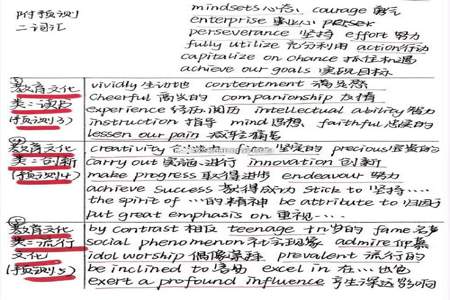 附预测
二词汇
mindsets心态, courage 勇气
enterprise 事业心
perseverance 坚持 effort 努力
fully utilize 充分利用 action行动
capitalize on chance 抓住机遇
achieve our goals 实现目标
教育文化
类:读后
(预测3)
vividly 生动地 contentment 满足感
Cheerful 高兴的 companionship 友情
experience 经历 intellectual ability
instruction 指导 mind 思想, faithful 忠实的
lessen our pain 减轻痛苦
教育文化
类:创新
(预测4)
creativity firm 坚定的 precious 宝贵的
carry out 实施.进行 innovation 创新
make progress 取得进步 endeavour 努力
achieve success 获得成功 Stick to 坚持...
the spirit of ...的精神 be attribute to 归因于
put great emphasis on 重视...
教育文化
类:流行
文化
(预测5)
by contrast 相反 teenage 十几岁的 fame 名声
social phenomenon 社会现象 admire 仰慕
idol worship 偶像崇拜 prevalent 流行的
be inclined to excel in 在...出色
exert a profound influence 产生深远影响